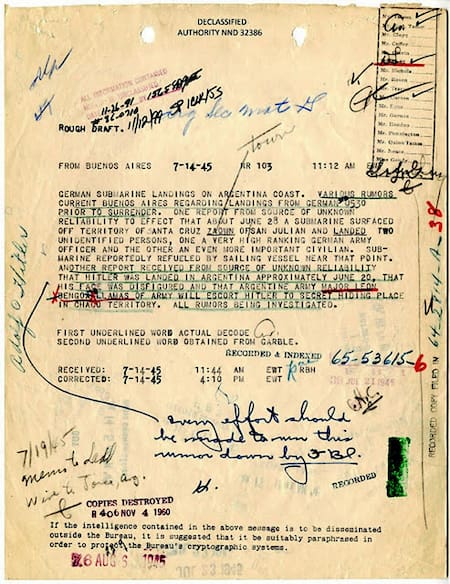 DECLASSIFIED
AUTHORITY NND 32386
ALL INFORMATION CONTAINED
ROUGH DRAFT.
town
FROM BUENOS AIRES 7-14-45 NR 103 11:12 AM
GERMAN SUBMARINE LANDINGS ON ARGENTINA COAST. VARIOUS RUMORS
CURRENT BUENOS AIRES REGARDING LANDINGS FROM GERMAN 0530
PRIOR TO SURRENDER. ONE REPORT FROM SOURCE OF UNKNOWN
RELIABILITY TO EFFECT THAT ABOUT JUNE 28 A SUBMARINE SURFACED
OFF TERRITORY OF SANTA CRUZ OF SAN JULIAN AND LANDED TWO
UNIDENTIFIED PERSONS, ONE A VERY HIGH RANKING GERMAN ARMY
OFFICER AND THE OTHER AN EVEN MORE IMPORTANT CIVILIAN. SUB-
MARINE REPORTEDLY REFUELED BY SAILING VESSEL NEAR THAT POINT.
ANOTHER REPORT RECEIVED FROM SOURCE OF UNKNOWN RELIABILITY
THAT HITLER WAS LANDED IN ARGENTINA APPROXIMATELY JUNE 20, THAT
HIS FACE WAS DISFIGURED AND THAT ARGENTINE ARMY MAJOR LEON
BENGOA LAMAS OF ARMY WILL ESCORT HITLER TO SECRET HIDING PLACE
IN CHACO TERRITORY. ALL RUMORS BEING INVESTIGATED.
Adolf Hitler
FIRST UNDERLINED WORD ACTUAL DECODE
SECOND UNDERLINED WORD OBTAINED FROM GARBLE.
RECORDED & INDEXED 65-53615-6
RECEIVED: 7-14-45 11:44 AM EWT RBH
CORRECTED: 7-14-45 4:10 PM EWT
Every effort should
be made to run this
rumor down by
7/19/45
memo to
COPIES DESTROYED
R 406 NOV 4 1960
RECORDED
RECORDED COPY FILED IN
If the intelligence contained in the above message is to be disseminated
outside the Bureau, it is suggested that it be suitably paraphrased in
order to protect the Bureau's cryptographic systems.
AUG 6 1945
JUL 23 1945